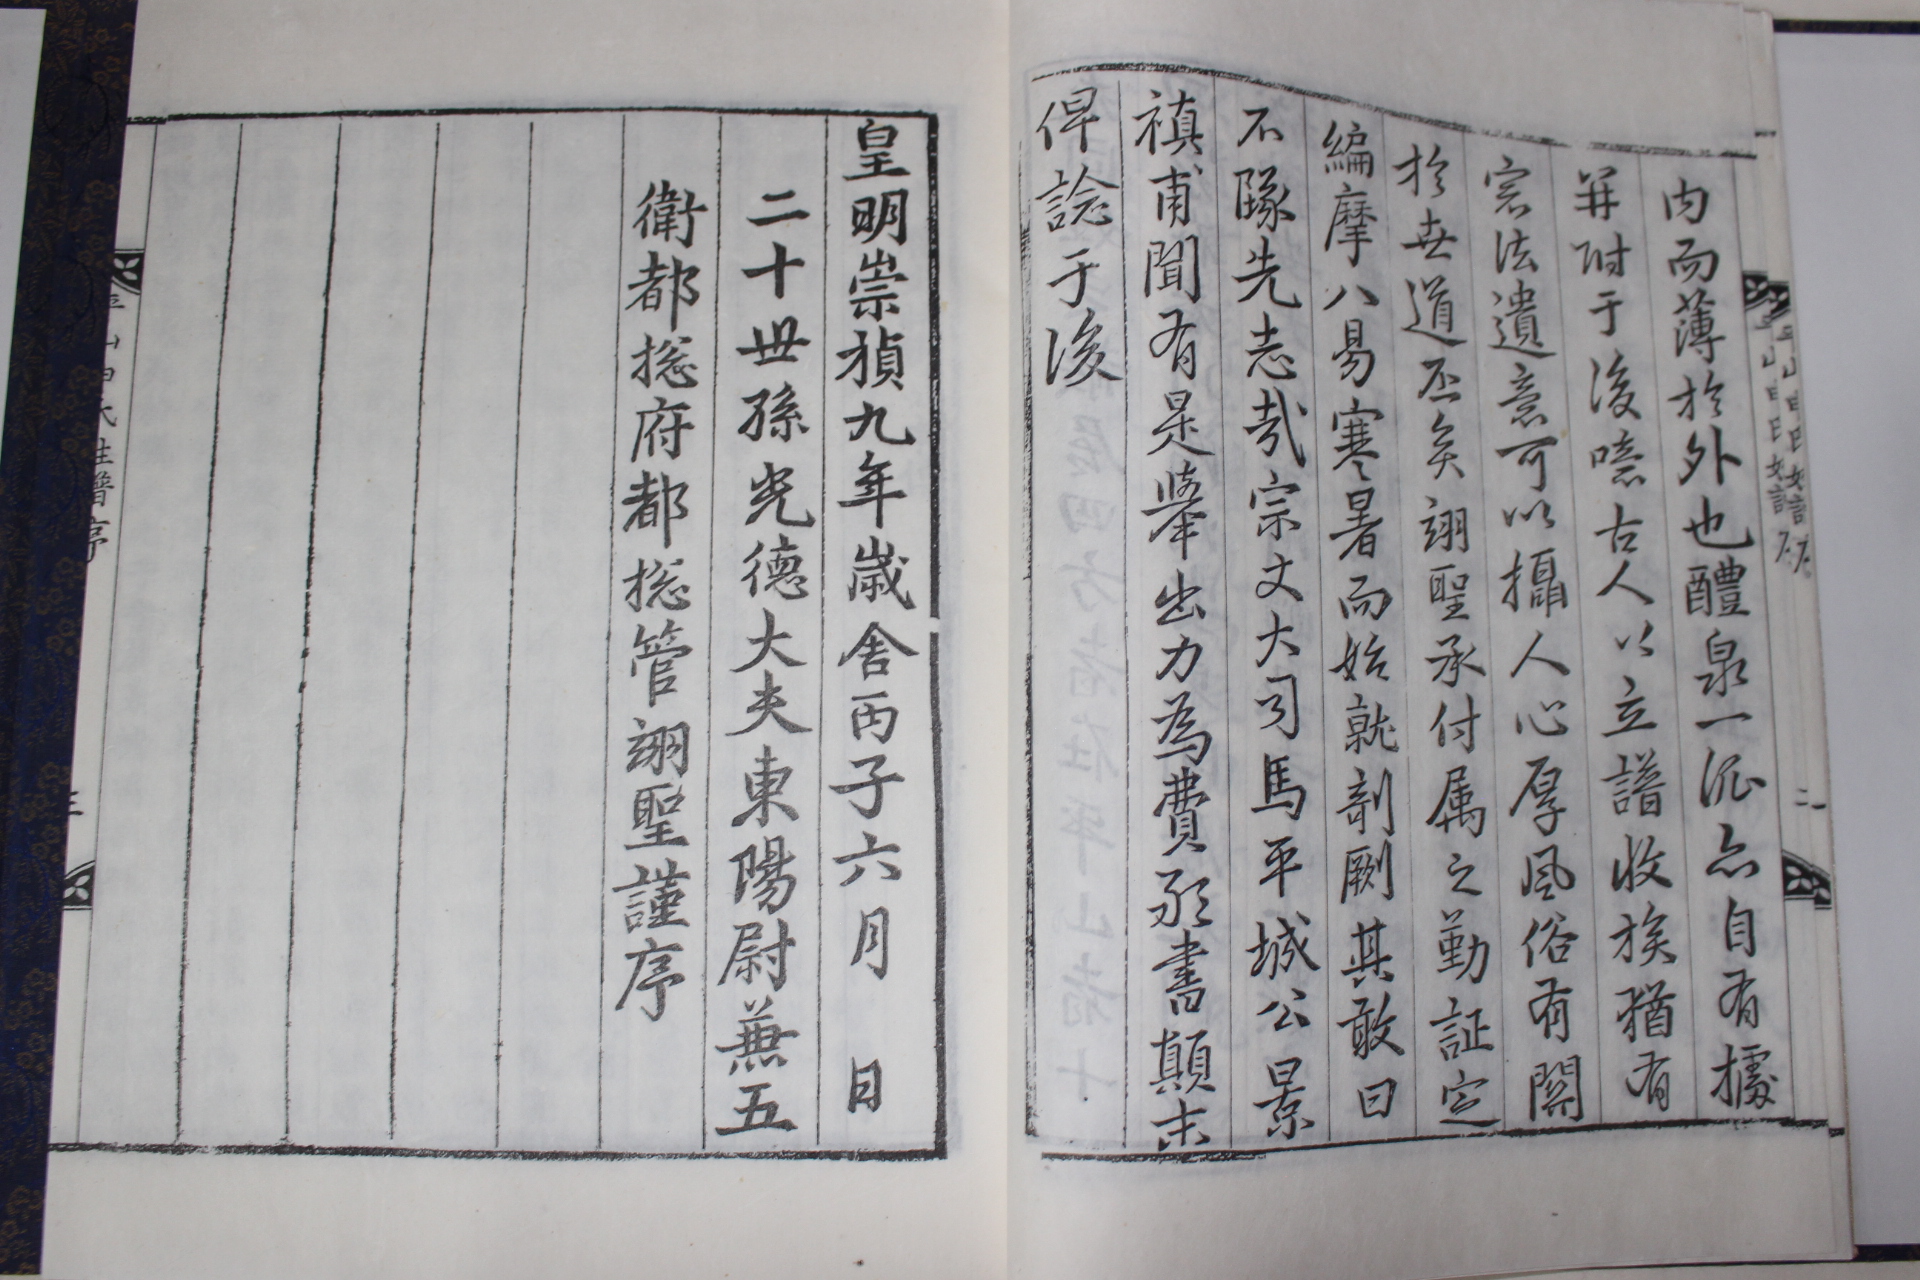 內而薄於外也醴泉一派亦自有據
並附于後噫古人以立譜收族猶有
宗法遺意可以攝人心厚風俗有關
於世道丕矣翊聖承付属之勤証定
編摩八易寒暑而始就剞劂其敢曰
不隊先志哉宗文大司馬平城公景
禛甫聞有是舉出力為費敢書顛末
俾諗于後
皇明崇禎九年歲舍丙子六月 日
二十世孫光德大夫東陽尉兼五
衛都摠府都摠管翊聖謹序
平山申氏姓譜序
三